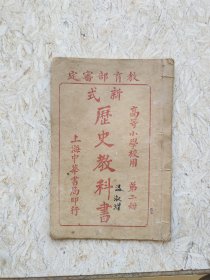 教育部審定
高等小學校用 第二册
新式
歷史教科書
上海中華書局印行